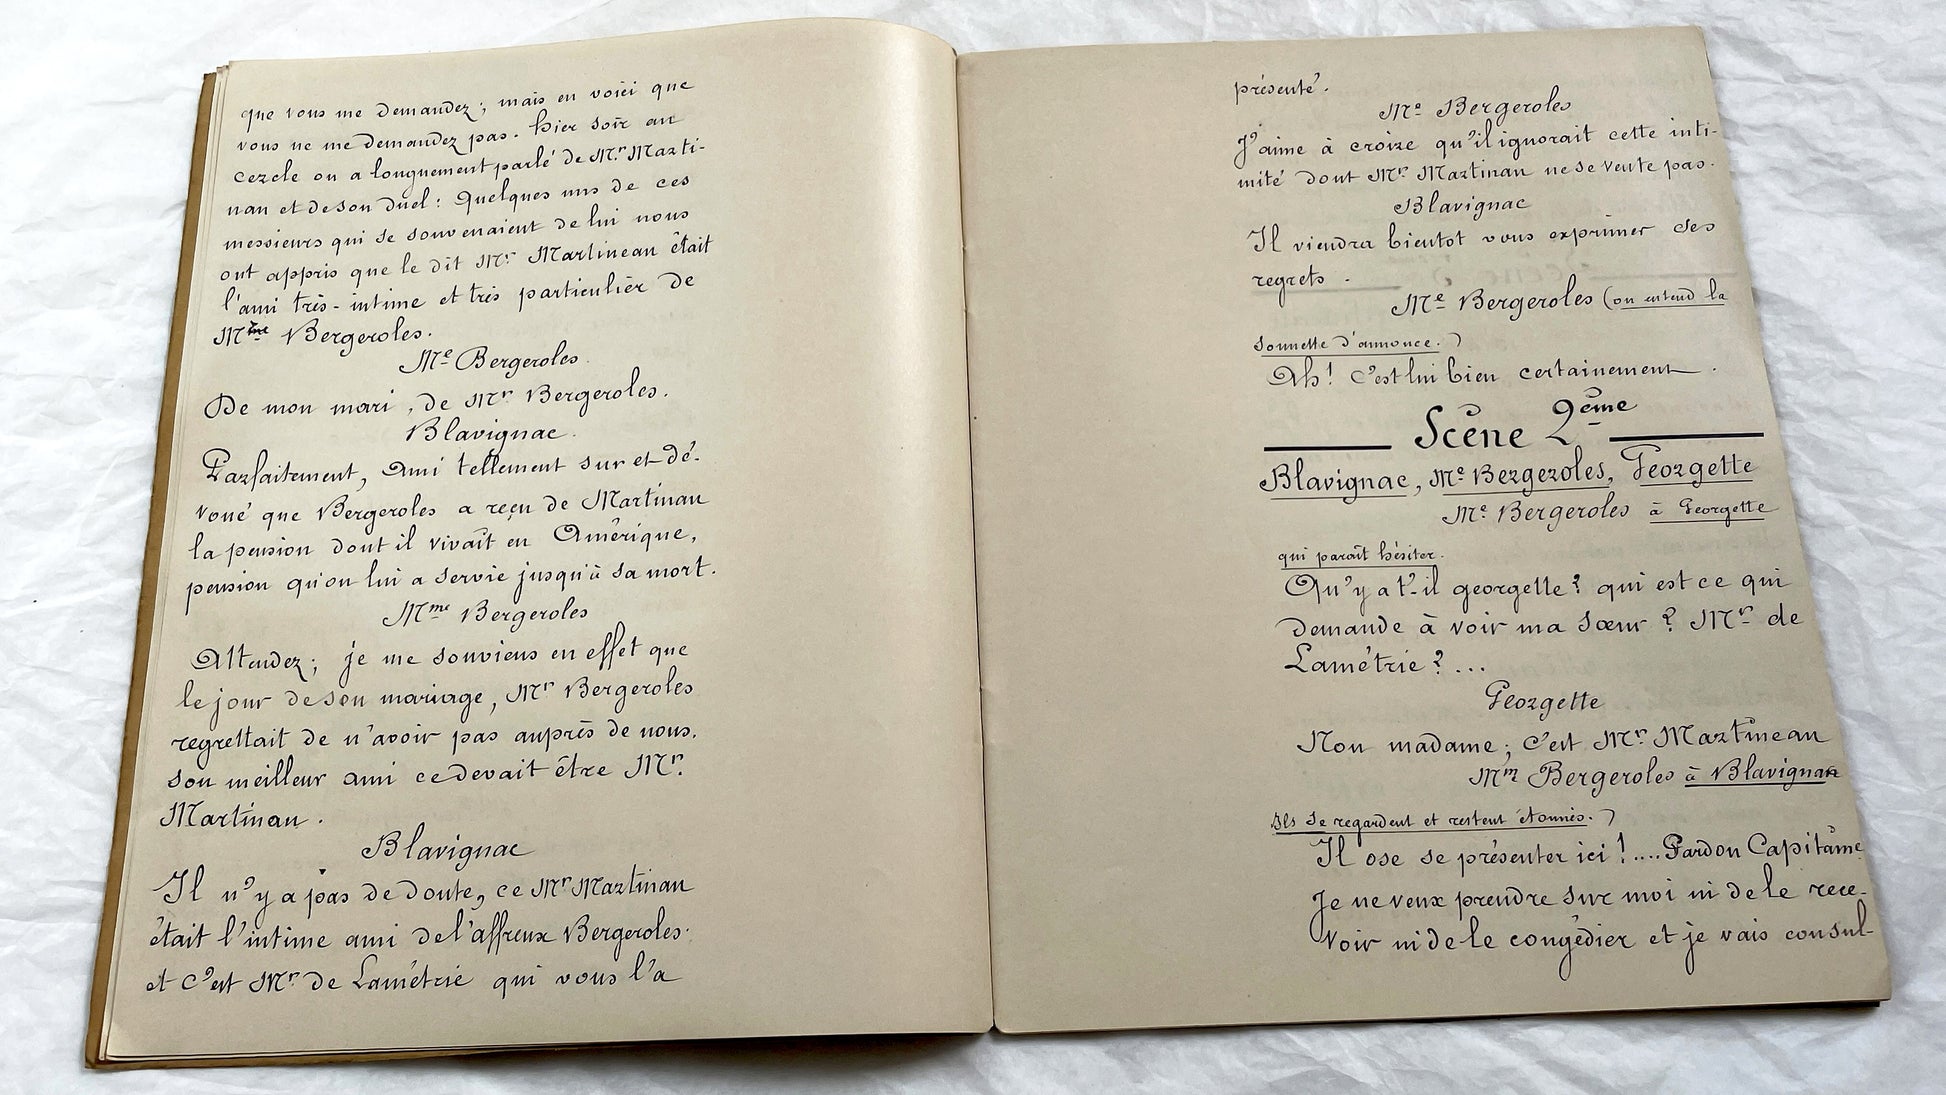 que vous me demandez; mais en voici que
vous ne me demandez pas. Hier soir au
cercle on a longuement parlé de Mr. Marti-
nan et de son duel: Quelques uns de ces
messieurs qui se souvenaient de lui nous
ont appris que le dit Mr Martineau était
l'ami très-intime et très particulier de
Mme Bergeroles.
Me Bergeroles.
De mon mari, de Mr Bergeroles.
Blavignac.
Parfaitement, Ami tellement sur et dé-
voué que Bergeroles a reçu de Martinan
la pension dont il vivait en Amérique,
pension qu'on lui a servie jusqu'à sa mort.
Mme Bergeroles
Attendez; je me souviens en effet que
le jour de son mariage, Mr Bergeroles
regrettait de n'avoir pas auprès de nous.
son meilleur ami ce devait être Mr.
Martinan.
Blavignac
Il n'y a pas de doute, ce Mr Martinan
était l'intime ami de l'affreux Bergeroles.
et c'est Mr. de Lamétrie qui vous l'a
présenté.
Me Bergeroles
J'aime à croire qu'il ignorait cette inti-
mité dont Mr. Martinan ne se vente pas.
Blavignac
Il viendra bientot vous exprimer ses
regrets.
Me Bergeroles (on entend la
sonnette d'annonce.)
Ah! c'est lui bien certainement.
Scène 2ème
Blavignac, Me Bergeroles, Georgette
Me Bergeroles à Georgette
qui paraît hésiter.
Qu'y a t'-il georgette? qui est ce qui
demande à voir ma sœur? Mr de
Lamétrie?...
Georgette
Non madame; c'est Mr Martineau
Mm Bergeroles à Blavignan
Ils se regardent et restent étonnés.)
Il ose se présenter ici!....Pardon Capitame
Je ne veux prendre sur moi ni de le rece-
voir ni de le congédier et je vais consul-